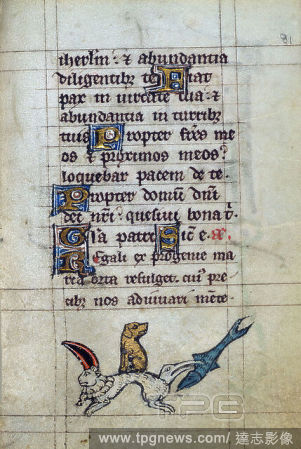 iherlm: & abundantia
diligentibꝫ te Fiat
pax in uirtute tua: &
abundantia in turribꝫ
tuis Propter frēs me
os & proximos meos:
loquebar pacem de te.
Propter domum dn̄i
dei nr̄i: quesiui bona t̄.
Gl̄a patri Sic̄ e. añ.
Regali ex progenie ma
ria orta refulget. cuiꝰ pre
cibꝫ nos adiuuari mēte
TPG
www.tpgnews.com/ 達志影像